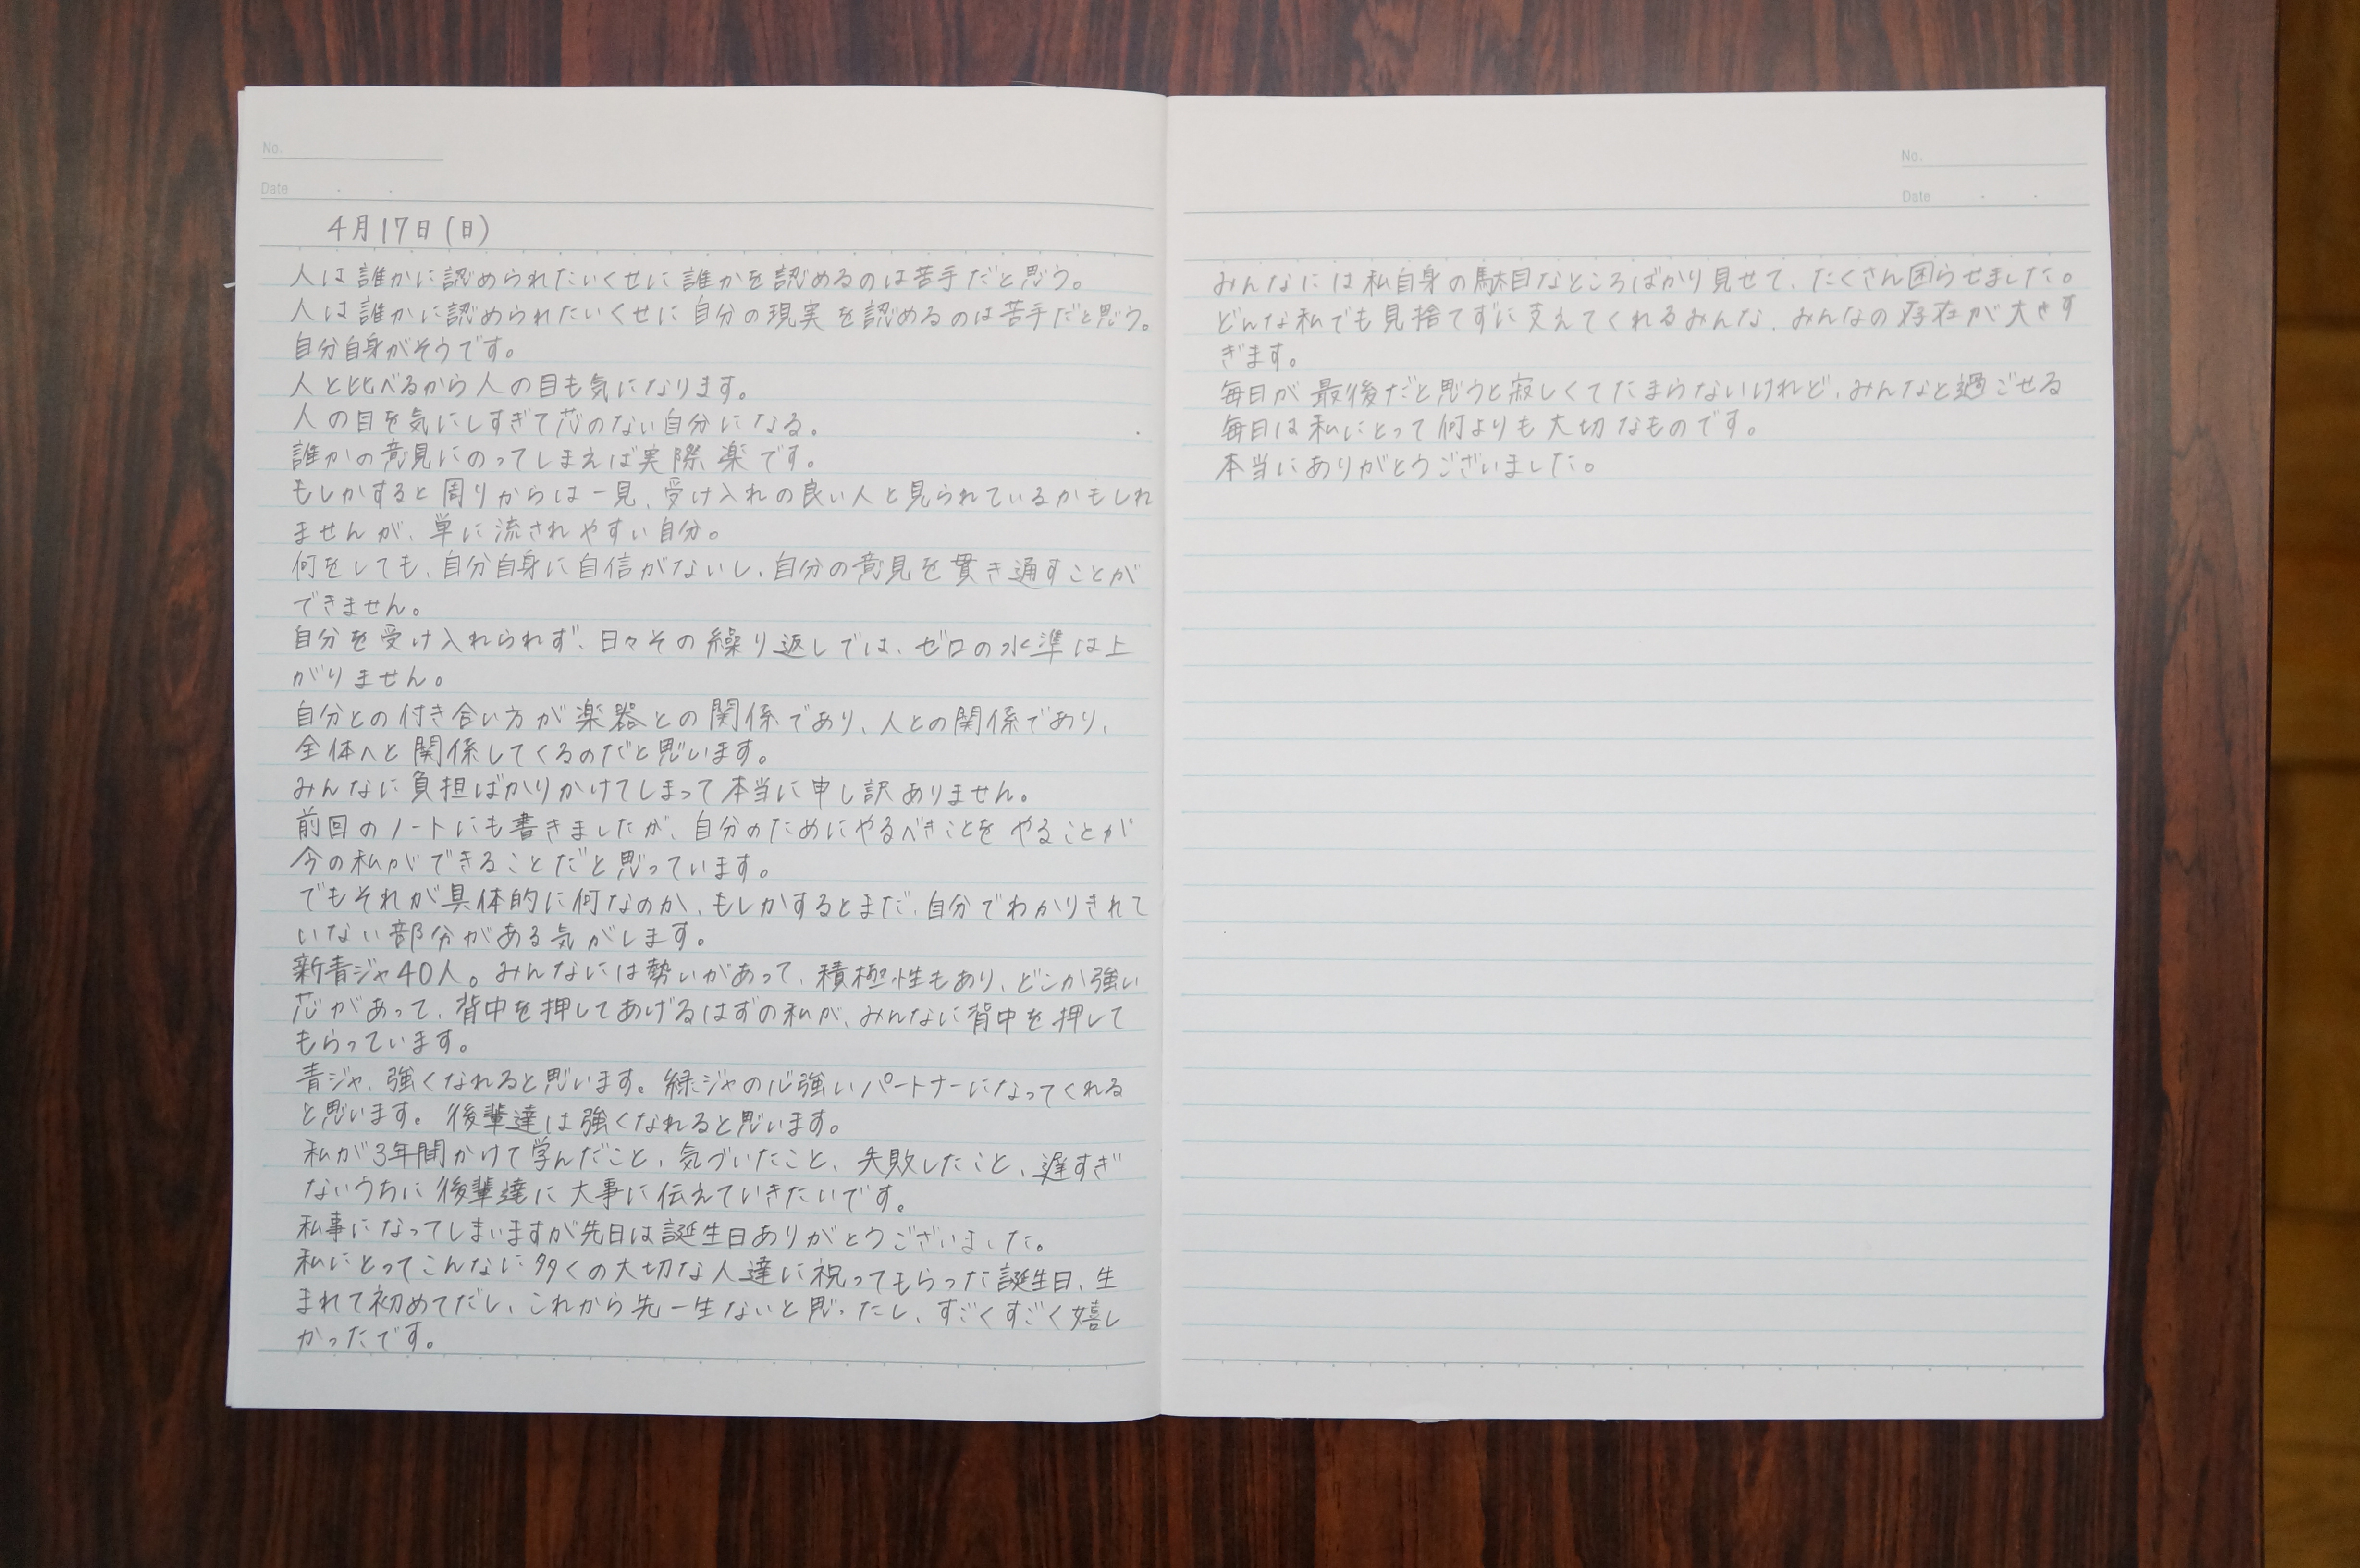 No.
Date
4月17日(日)
人は誰かに認められたいくせに誰かを認めるのは苦手だと思う。
人は誰かに認められたいくせに自分の現実を認めるのは苦手だと思う。
自分自身がそうです。
人と比べるから人の目も気になります。
人の目を気にしすぎて芯のない自分になる。
誰かの意見にのってしまえば実際楽です。
もしかすると周りからは一見、受け入れの良い人と見られているかもしれ
ませんが、単に流されやすい自分。
何をしても、自分自身に自信がないし、自分の意見を貫き通すことが
できません。
自分を受け入れられず、日々その繰り返しでは、ゼロの水準は上
がりません。
自分との付き合い方が楽器との関係であり、人との関係であり、
全体へと関係してくるのだと思います。
みんなに負担ばかりかけてしまって本当に申し訳ありません。
前回のノートにも書きましたが、自分のためにやるべきことをやることが
今の私ができることだと思っています。
でもそれが具体的に何なのか、もしかするとまだ、自分でわかりきれて
いない部分がある気がします。
新青ジャ40人。みんなには勢いがあって、積極性もあり、どこか強い
芯があって、背中を押してあげるはずの私が、みんなに背中を押して
もらっています。
青ジャ、強くなれると思います。緑ジャの心強いパートナーになってくれる
と思います。後輩達は強くなれると思います。
私が3年間かけて学んだこと、気づいたこと、失敗したこと、遅すぎ
ないうちに後輩達に大事に伝えていきたいです。
私事になってしまいますが先日は誕生日ありがとうございました。
私にとってこんなに多くの大切な人達に祝ってもらった誕生日、生
まれて初めてだし、これから先一生ないと思ったし、すごくすごく嬉し
かったです。
No.
Date
みんなには私自身の駄目なところばかり見せて、たくさん困らせました。
どんな私でも見捨てずに支えてくれるみんな、みんなの存在が大きす
ぎます。
毎日が最後だと思うと寂しくてたまらないけれど、みんなと過ごせる
毎日は私にとって何よりも大切なものです。
本当にありがとうございました。